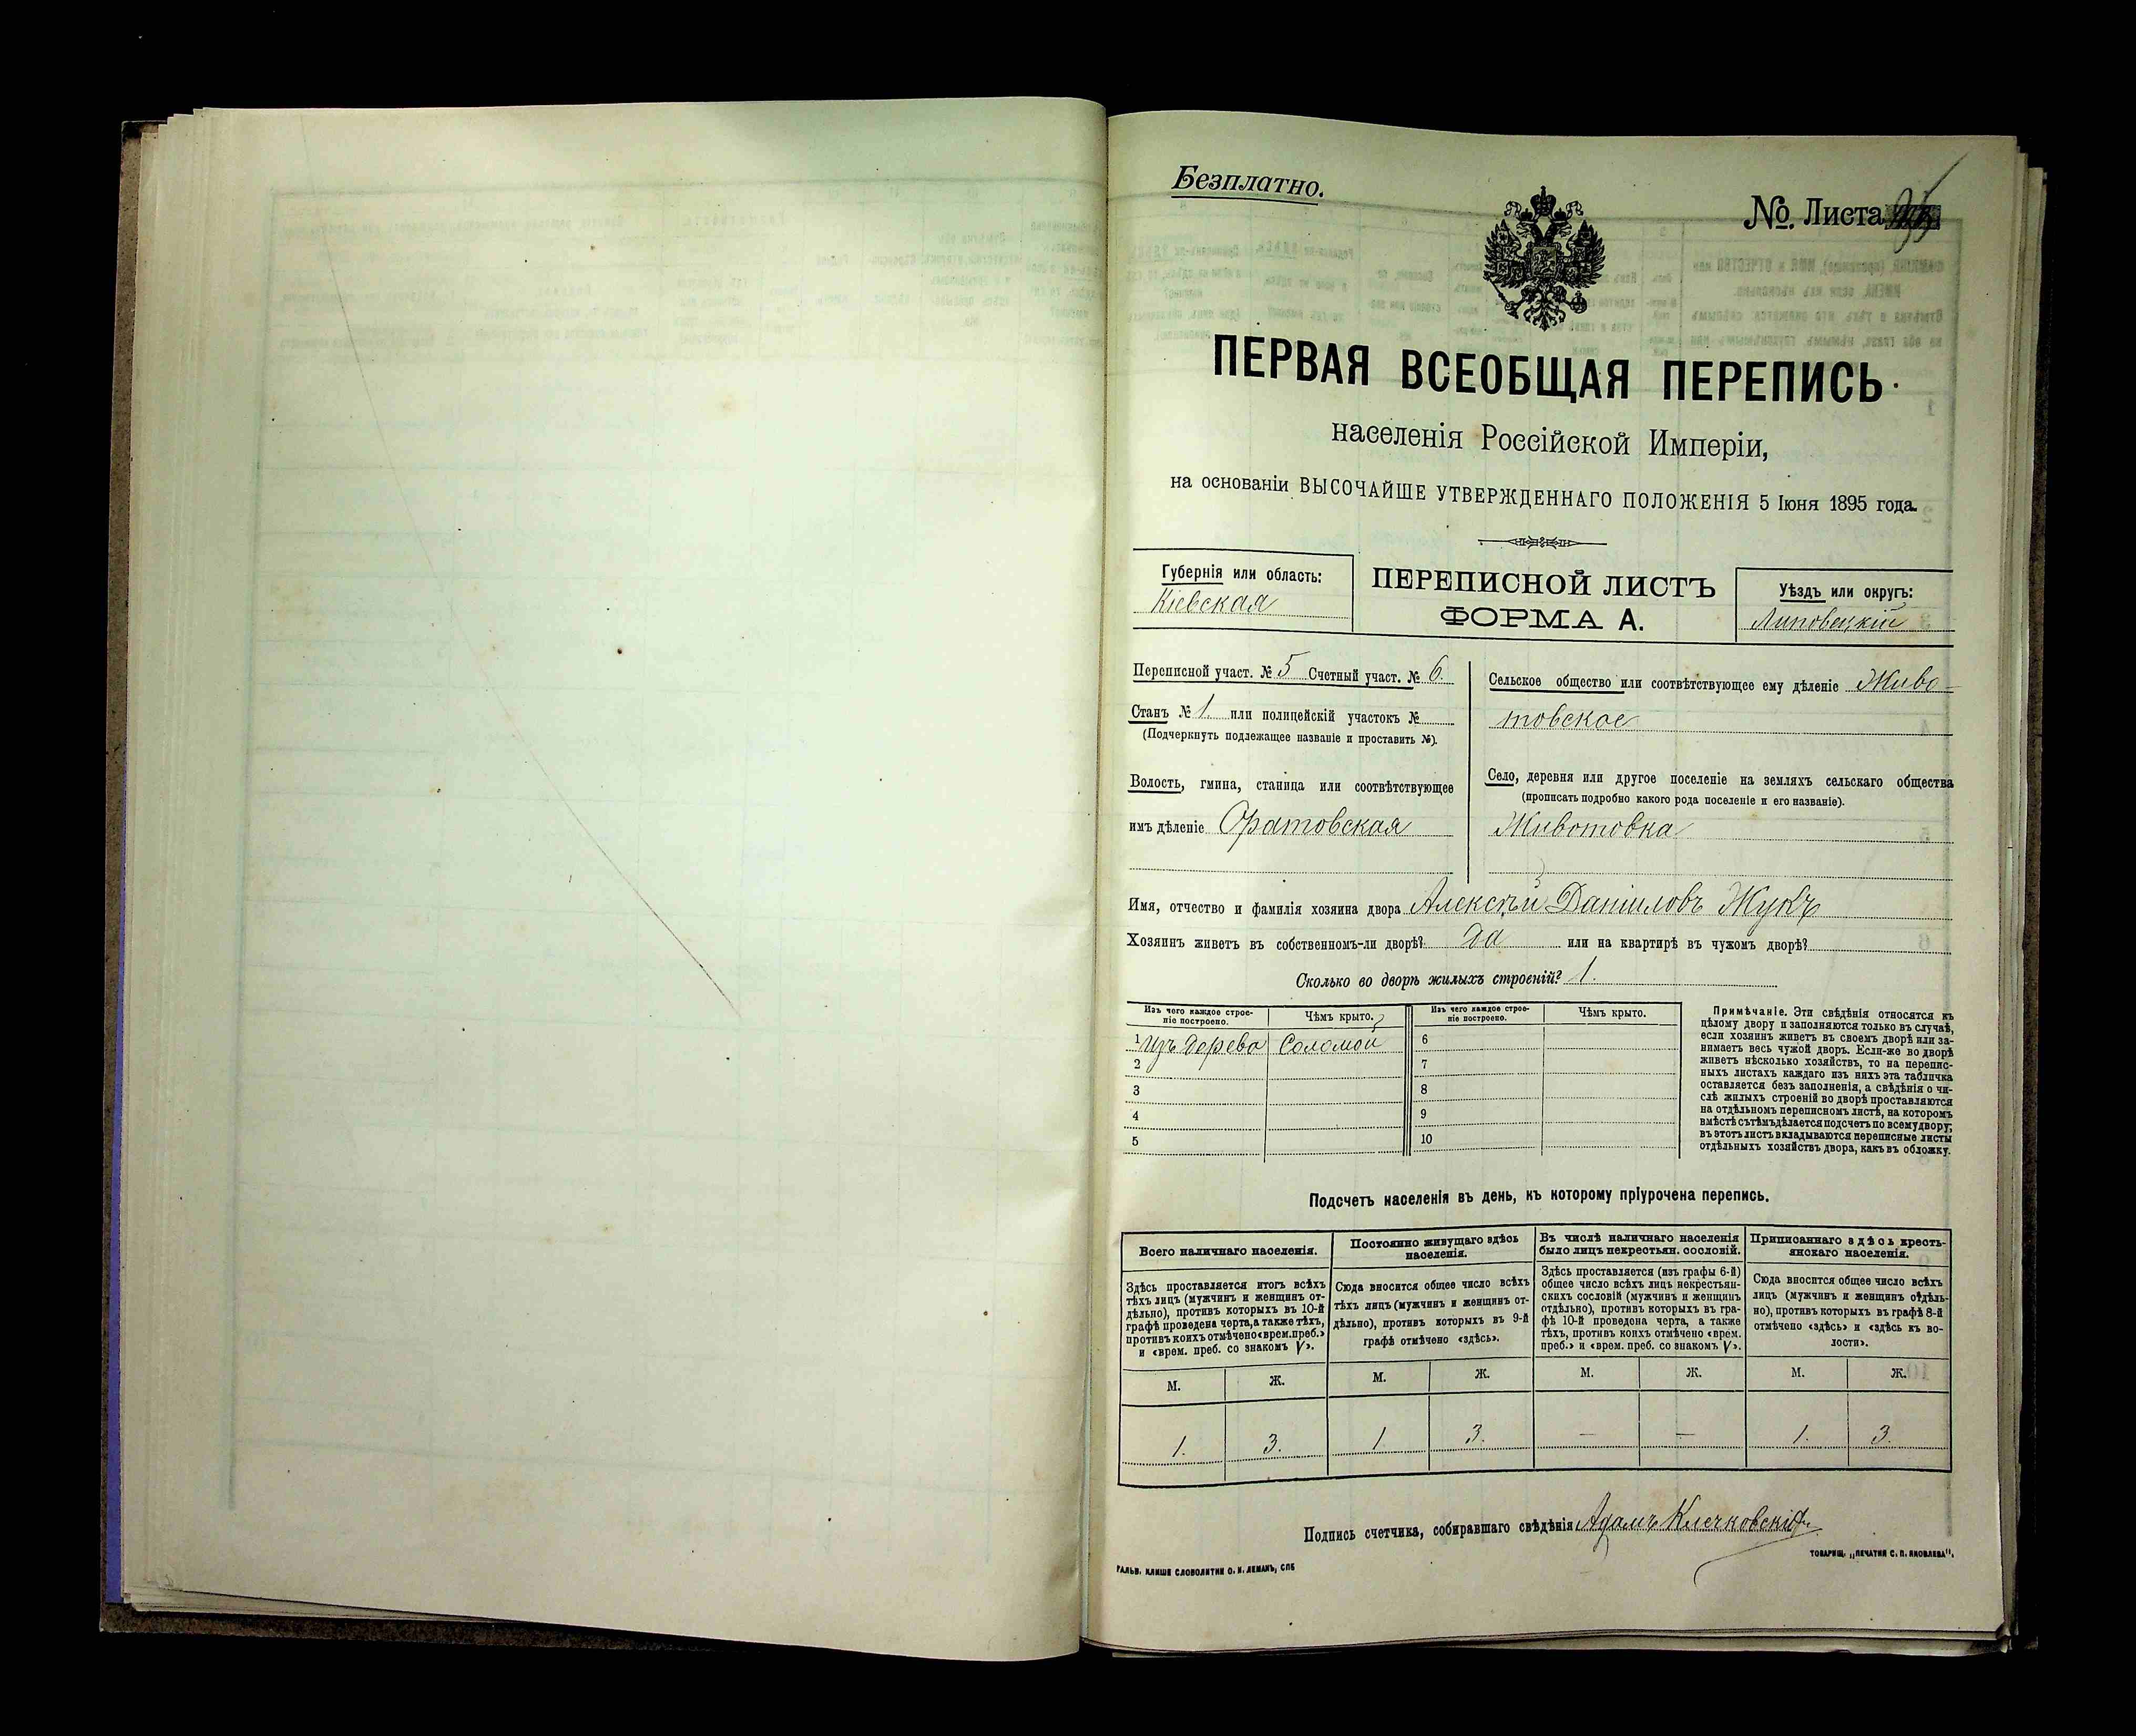 Безплатно.
№. Листа 95
ПЕРВАЯ ВСЕОБЩАЯ ПЕРЕПИСЬ
населенія Россійской Имперіи,
на основаніи ВЫСОЧАЙШЕ УТВЕРЖДЕННАГО ПОЛОЖЕНІЯ 5 Іюня 1895 года.
Губернія или область:
Кіевская
ПЕРЕПИСНОЙ ЛИСТЪ
ФОРМА А.
Уѣздъ или округъ:
Липовецкій
Переписной участ. № 5 Счетный участ. № 6.
Станъ № 1 или полицейскій участокъ №
(Подчеркнуть подлежащее названіе и проставить №).
Волость, гмина, станица или соотвѣтствующее
имъ дѣленіе Оратовская
Сельское общество или соотвѣтствующее ему дѣленіе Живо-
товское
Село, деревня или другое поселеніе на земляхъ сельскаго общества
(прописать подробно какого рода поселеніе и его названіе).
Животовка
Имя, отчество и фамилія хозяина двора Алексѣй Даниловъ Жукъ
Хозяинъ живетъ въ собственномъ-ли дворѣ? Да или на квартирѣ въ чужомъ дворѣ?
Сколько во дворѣ жилыхъ строеній? 1.
Изъ чего каждое строе-
ніе построено.
Чѣмъ крыто.
Изъ чего каждое строе-
ніе построено.
Чѣмъ крыто.
1 Изъ дерева Соломой 6
2 7
3 8
4 9
5 10
Примѣчаніе. Эти свѣдѣнія относятся къ
цѣлому двору и заполняются только въ случаѣ,
если хозяинъ живетъ въ своемъ дворѣ или за-
нимаетъ весь чужой дворъ. Если-же во дворѣ
живетъ нѣсколько хозяйствъ, то на перепис-
ныхъ листахъ каждаго изъ нихъ эта табличка
оставляется безъ заполненія, а свѣдѣнія о чи-
слѣ жилыхъ строеній во дворѣ проставляются
на отдѣльномъ переписномъ листѣ, на которомъ
вмѣстѣ съ тѣмъ дѣлается подсчетъ по всему двору;
въ этотъ листъ вкладываются переписные листы
отдѣльныхъ хозяйствъ двора, какъ въ обложку.
Подсчетъ населенія въ день, къ которому пріурочена перепись.
Всего наличнаго населенія.
Здѣсь проставляется итогъ всѣхъ
тѣхъ лицъ (мужчинъ и женщинъ от-
дѣльно), противъ которыхъ въ 10-й
графѣ проведена черта, а также тѣхъ,
противъ коихъ отмѣчено «врем. преб.»
и «врем. преб. со знакомъ V».
Постоянно живущаго здѣсь
населенія.
Сюда вносится общее число всѣхъ
тѣхъ лицъ (мужчинъ и женщинъ от-
дѣльно), противъ которыхъ въ 9-й
графѣ отмѣчено «здѣсь».
Въ числѣ наличнаго населенія
было лицъ некрестьян. сословій.
Здѣсь проставляется (изъ графы 6-й)
общее число всѣхъ лицъ некрестьян-
скихъ сословій (мужчинъ и женщинъ
отдѣльно), противъ которыхъ въ гра-
фѣ 10-й проведена черта, а также
тѣхъ, противъ коихъ отмѣчено «врем.
преб.» и «врем. преб. со знакомъ V».
Приписаннаго здѣсь кресть-
янскаго населенія.
Сюда вносится общее число всѣхъ
лицъ (мужчинъ и женщинъ отдѣль-
но), противъ которыхъ въ графѣ 8-й
отмѣчено «здѣсь» и «здѣсь къ во-
лости».
М. Ж. М. Ж. М. Ж. М. Ж.
1. 3. 1 3. — — 1. 3.
Подпись счетчика, собиравшаго свѣдѣнія Адамъ Клечковскій
ГАЛЬВ. КЛИШЕ СЛОВОЛИТНИ О. И. ЛЕМАНЪ, СПБ
ТОВАРИЩ. „ПЕЧАТНЯ С. П. ЯКОВЛЕВА".